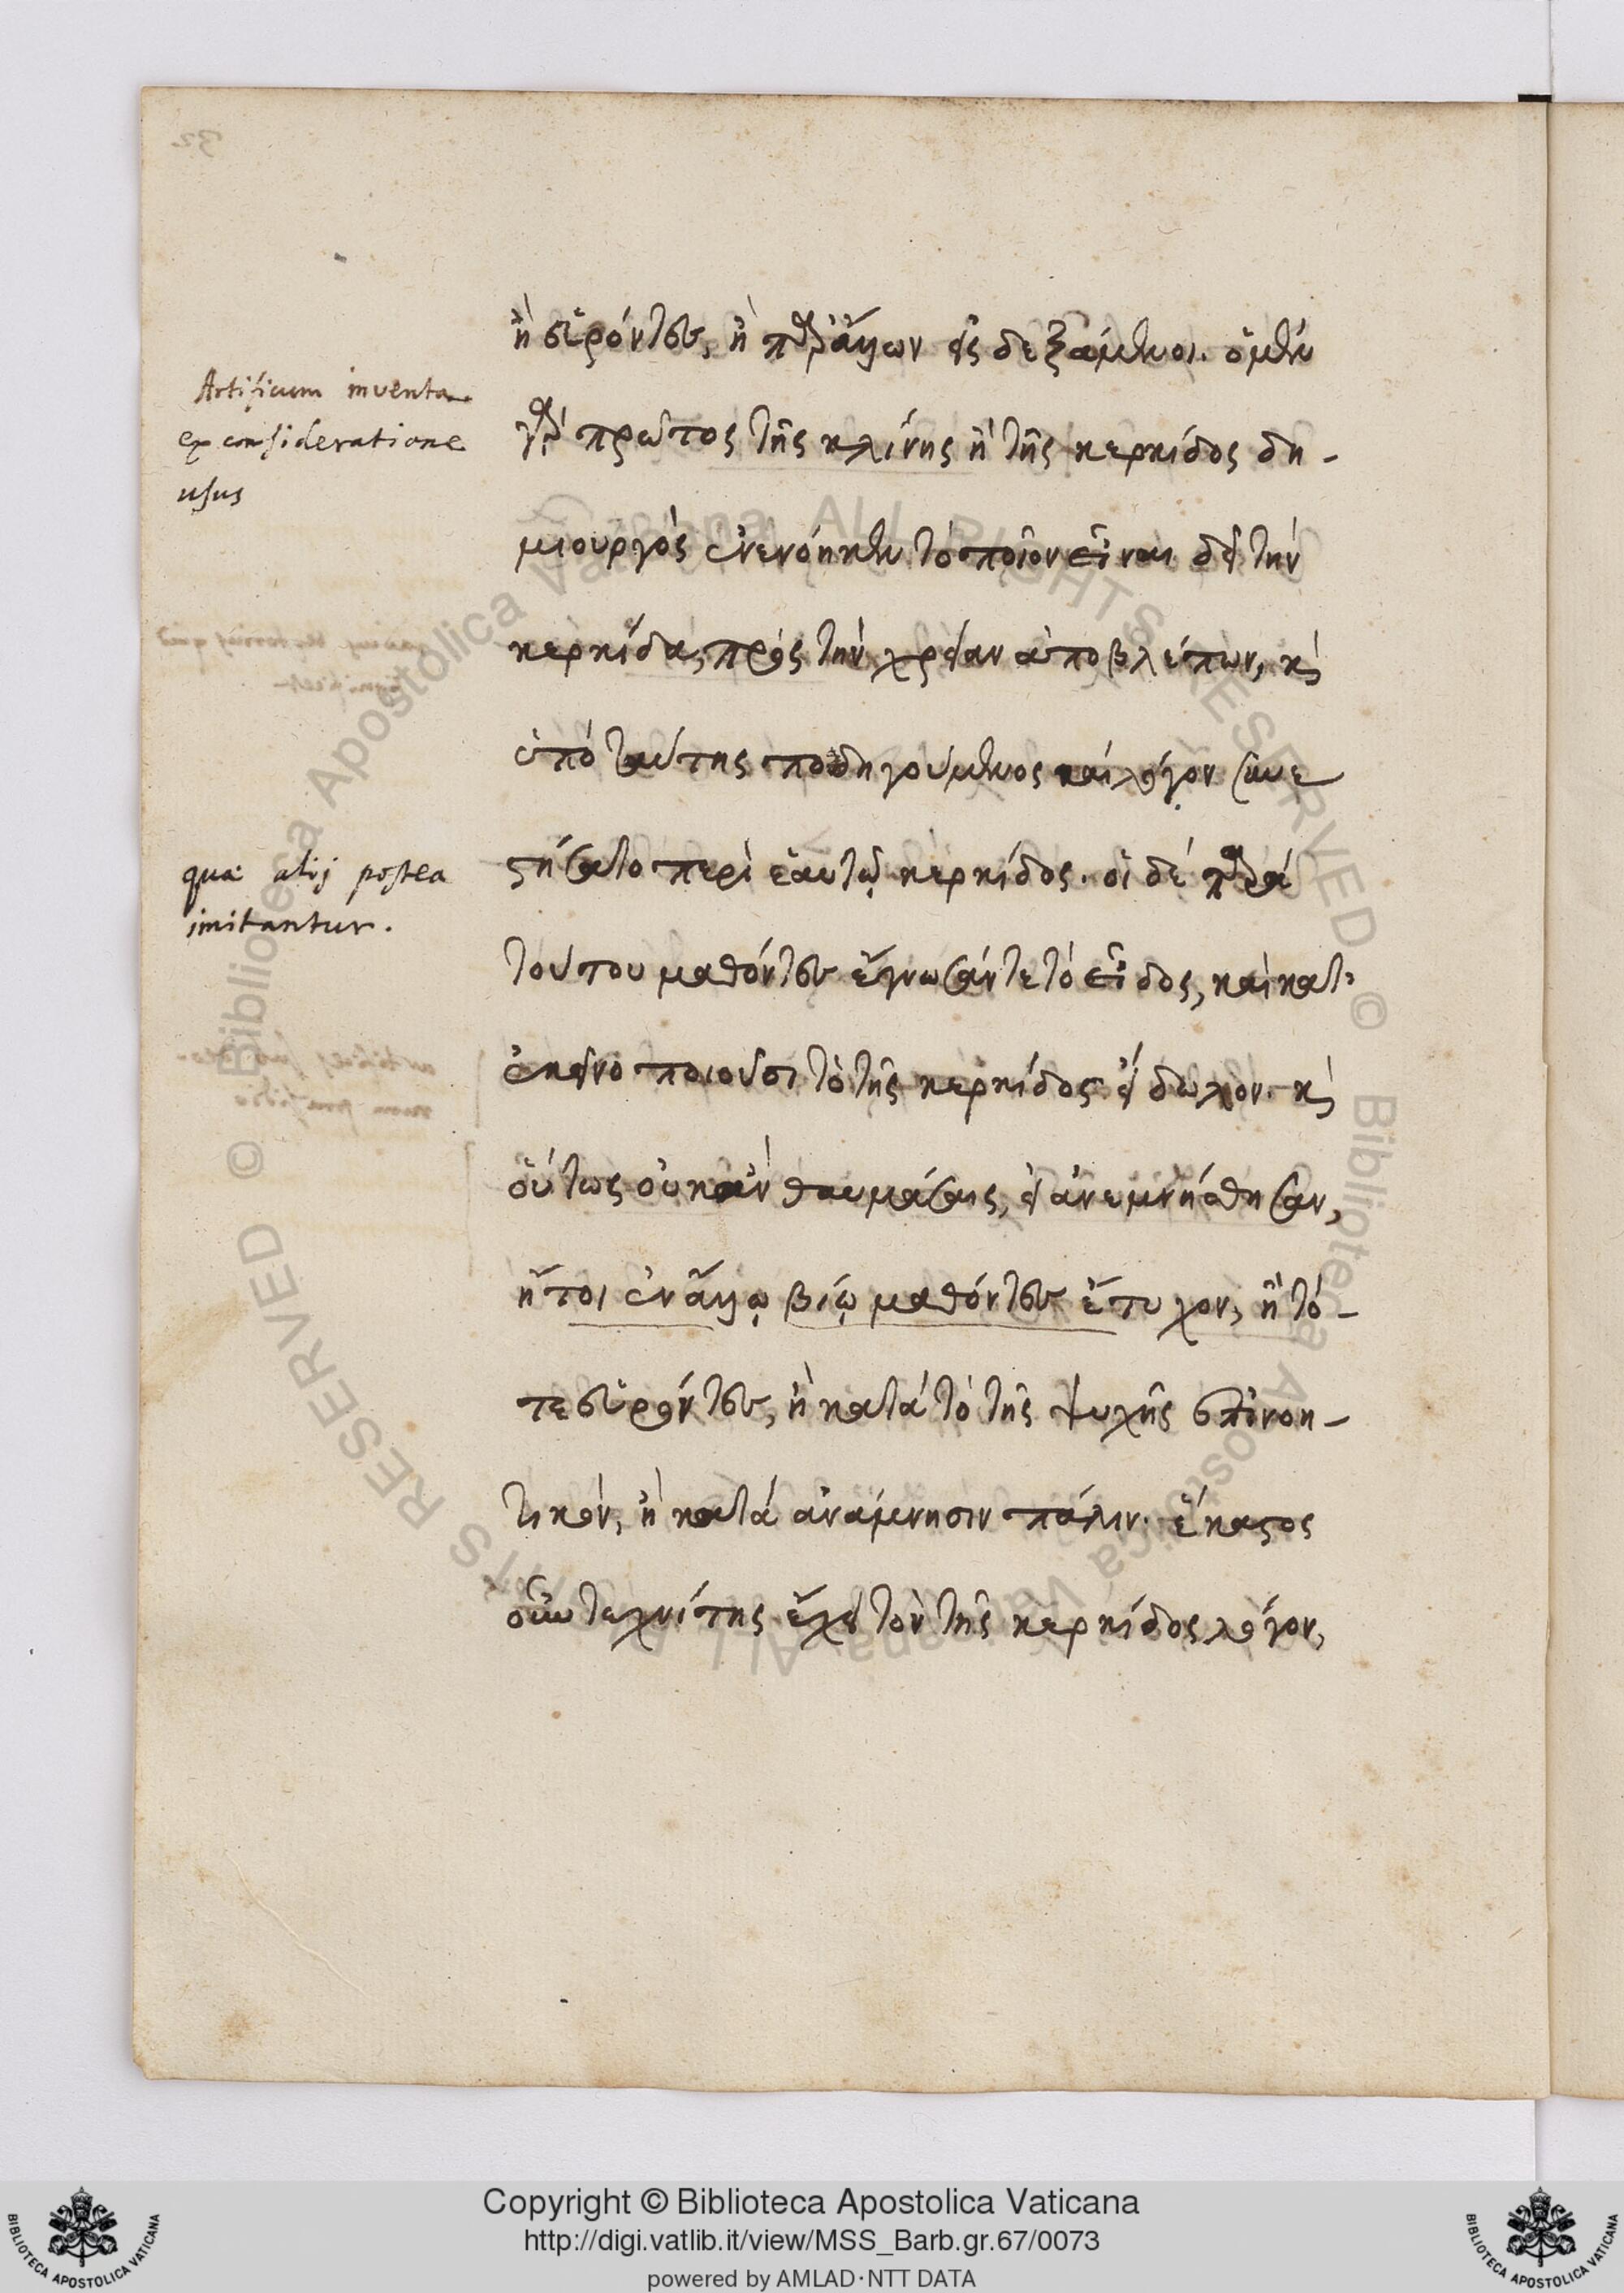 ἢ εὑρόντες, ἢ παρ' ἄλλων εἰσδεξάμενοι. ὁ μὲν
Artificum inventa
ex consideratione
usus
γὰρ πρῶτος τῆς κλίνης ἢ τῆς κερκίδος δη-
μιουργὸς ἐνενόηκεν τὸ ποῖον εἶναι δεῖ τὴν
κερκίδα, πρὸς τὴν χρείαν ἀποβλέπων, καὶ
ὑπὸ ταύτης ποδηγούμενος καὶ λόγον συνε
quae alij postea
imitantur.
στήσατο περὶ ἑαυτῷ κερκίδος. οἱ δὲ παρὰ
τούτου μαθόντες ἔγνωσάν τε τὸ εἶδος, καὶ κατ'
ἐκεῖνο ποιοῦσι τὸ τῆς κερκίδος εἴδωλον. καὶ
οὕτως οὐκ ἂν θαυμάσαις, εἰ ἀνεμνήσθησαν,
ἤτοι ἐν ἄλλῳ βίῳ μαθόντες ἔτυχον, ἢ τό-
τε εὑρόντες, ἢ κατὰ τὸ τῆς ψυχῆς ἐπινοη-
τικόν, ἢ κατὰ ἀνάμνησιν πάλιν. ἕκαστος
οὖν τεχνίτης ἔχει τὸν τῆς κερκίδος λόγον,
© Biblioteca Apostolica Vaticana ALL RIGHTS RESERVED © Biblioteca Apostolica Vaticana ALL RIGHTS RESERVED
Copyright © Biblioteca Apostolica Vaticana
http://digi.vatlib.it/view/MSS_Barb.gr.67/0073
powered by AMLAD·NTT DATA
BIBLIOTECA APOSTOLICA VATICANA
BIBLIOTECA APOSTOLICA VATICANA